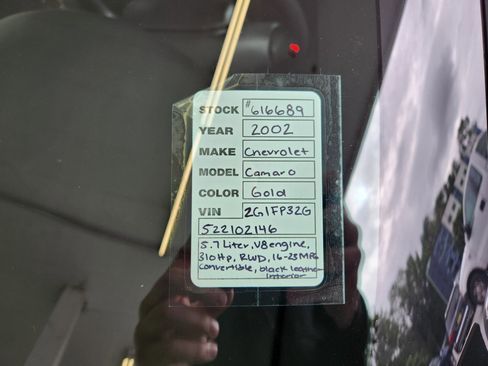 STOCK #616689
YEAR 2002
MAKE Chevrolet
MODEL Camaro
COLOR Gold
VIN 2G1FP32G
522102146
5.7 Liter, V8 engine,
310 Hp, RWD, 16-25 MPG
Convertible, black leather
interior